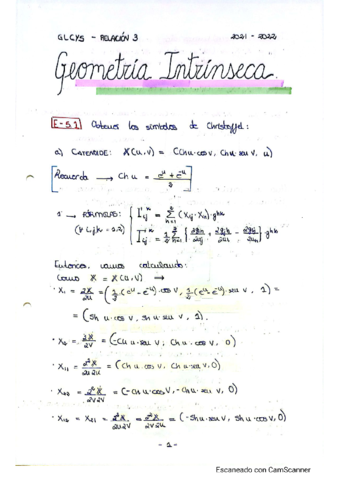 GLCYS - RELACIÓN 3    2021 - 2022
Geometría Intrínseca.
E-5.1 Obtener los símbolos de Christoffel:
a) CATENOIDE: X(u,v) = (Chu·cos v, Chu·sen v, u)
Recuerda → Ch u = (e^u + e^-u)/2
FÓRMULAS:
Entonces, vamos calculando:
Como X = X(u,v) →
· X₁ = ∂X/∂u = (1/2 (e^u - e^-u)·cos v, 1/2 (e^u - e^-u)·sen v, 1) =
= (Sh u·cos v, Sh u·sen v, 1).
= ∂X/∂v = (-Ch u·sen v, Ch u·cos v, 0)
· X₁₁ = ∂²X/∂u∂u = (Ch u·cos v, Ch u·sen v, 0)
= ∂²X/∂v∂v = (-Ch u·cos v, -Ch u·sen v, 0)
= X₂₁ = = = (-Sh u·sen v, Sh u·cos v, 0)
- 1 -
Escaneado con CamScanner